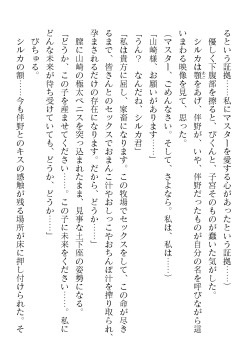 るという証拠……私にマスターを愛する心があったという証拠……)
優しく下腹部を擦ると、ぴくんと、子宮そのものが蠢いた気がした。
シルカは顔をあげ、伴野が、いや、伴野だったものが自分の名を呼びながら這
いまわる映像を見て、思った。
(マスター、ごめんなさい。そして、さよなら。私は、私は……)
「山崎様、お願いがあります……」
「うん？　なんだね、シルカ君」
「私は貴方に屈し、家畜になります。この牧場でセックスをして、この命が尽き
るまで、皆さんとのセックスでおまんこ汁やおしっこやおちんぽ汁を搾り取られ、
孕まされるだけの存在になります。だから、だから……」
膣に山崎の極太ペニスを突っ込まれたまま、見事な土下座の姿勢になる。
「どうか、この子を産ませてください……。この子に未来をください……。私に
どんな未来が待ち受けていても、どうか、どうか……」
ぴちゅる。
シルカの額……今も伴野とのキスの感触が残る場所が床に押し付けられた。そ